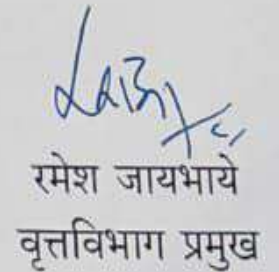 रमेश जायभाये
वृत्तविभाग प्रमुख